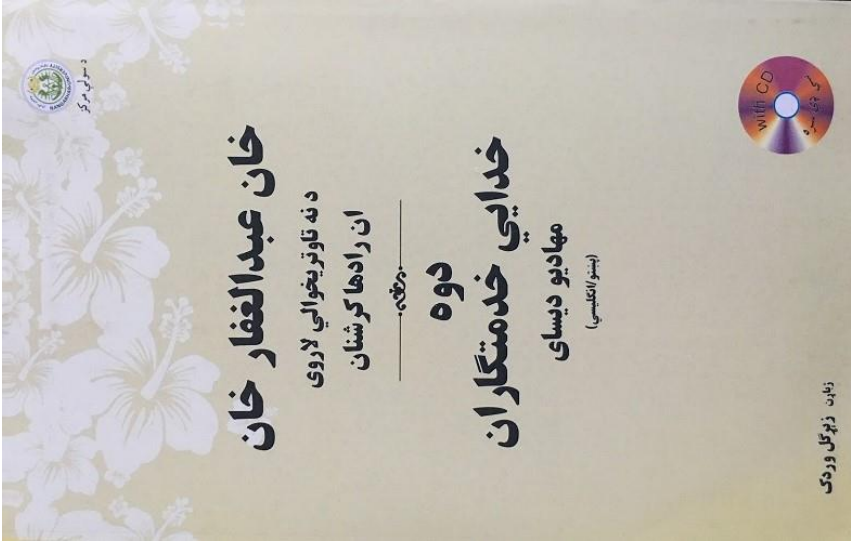 د سولې مرکز
خان عبدالغفار خان
د نه تاوتريخوالي لاروی
ان رادها کرشنان
دوه
خدايي خدمتګاران
مهاديو ديسای
(پښتو/انګليسي)
with CD
سي ډي سره
ژباړن زېړګل وردګ